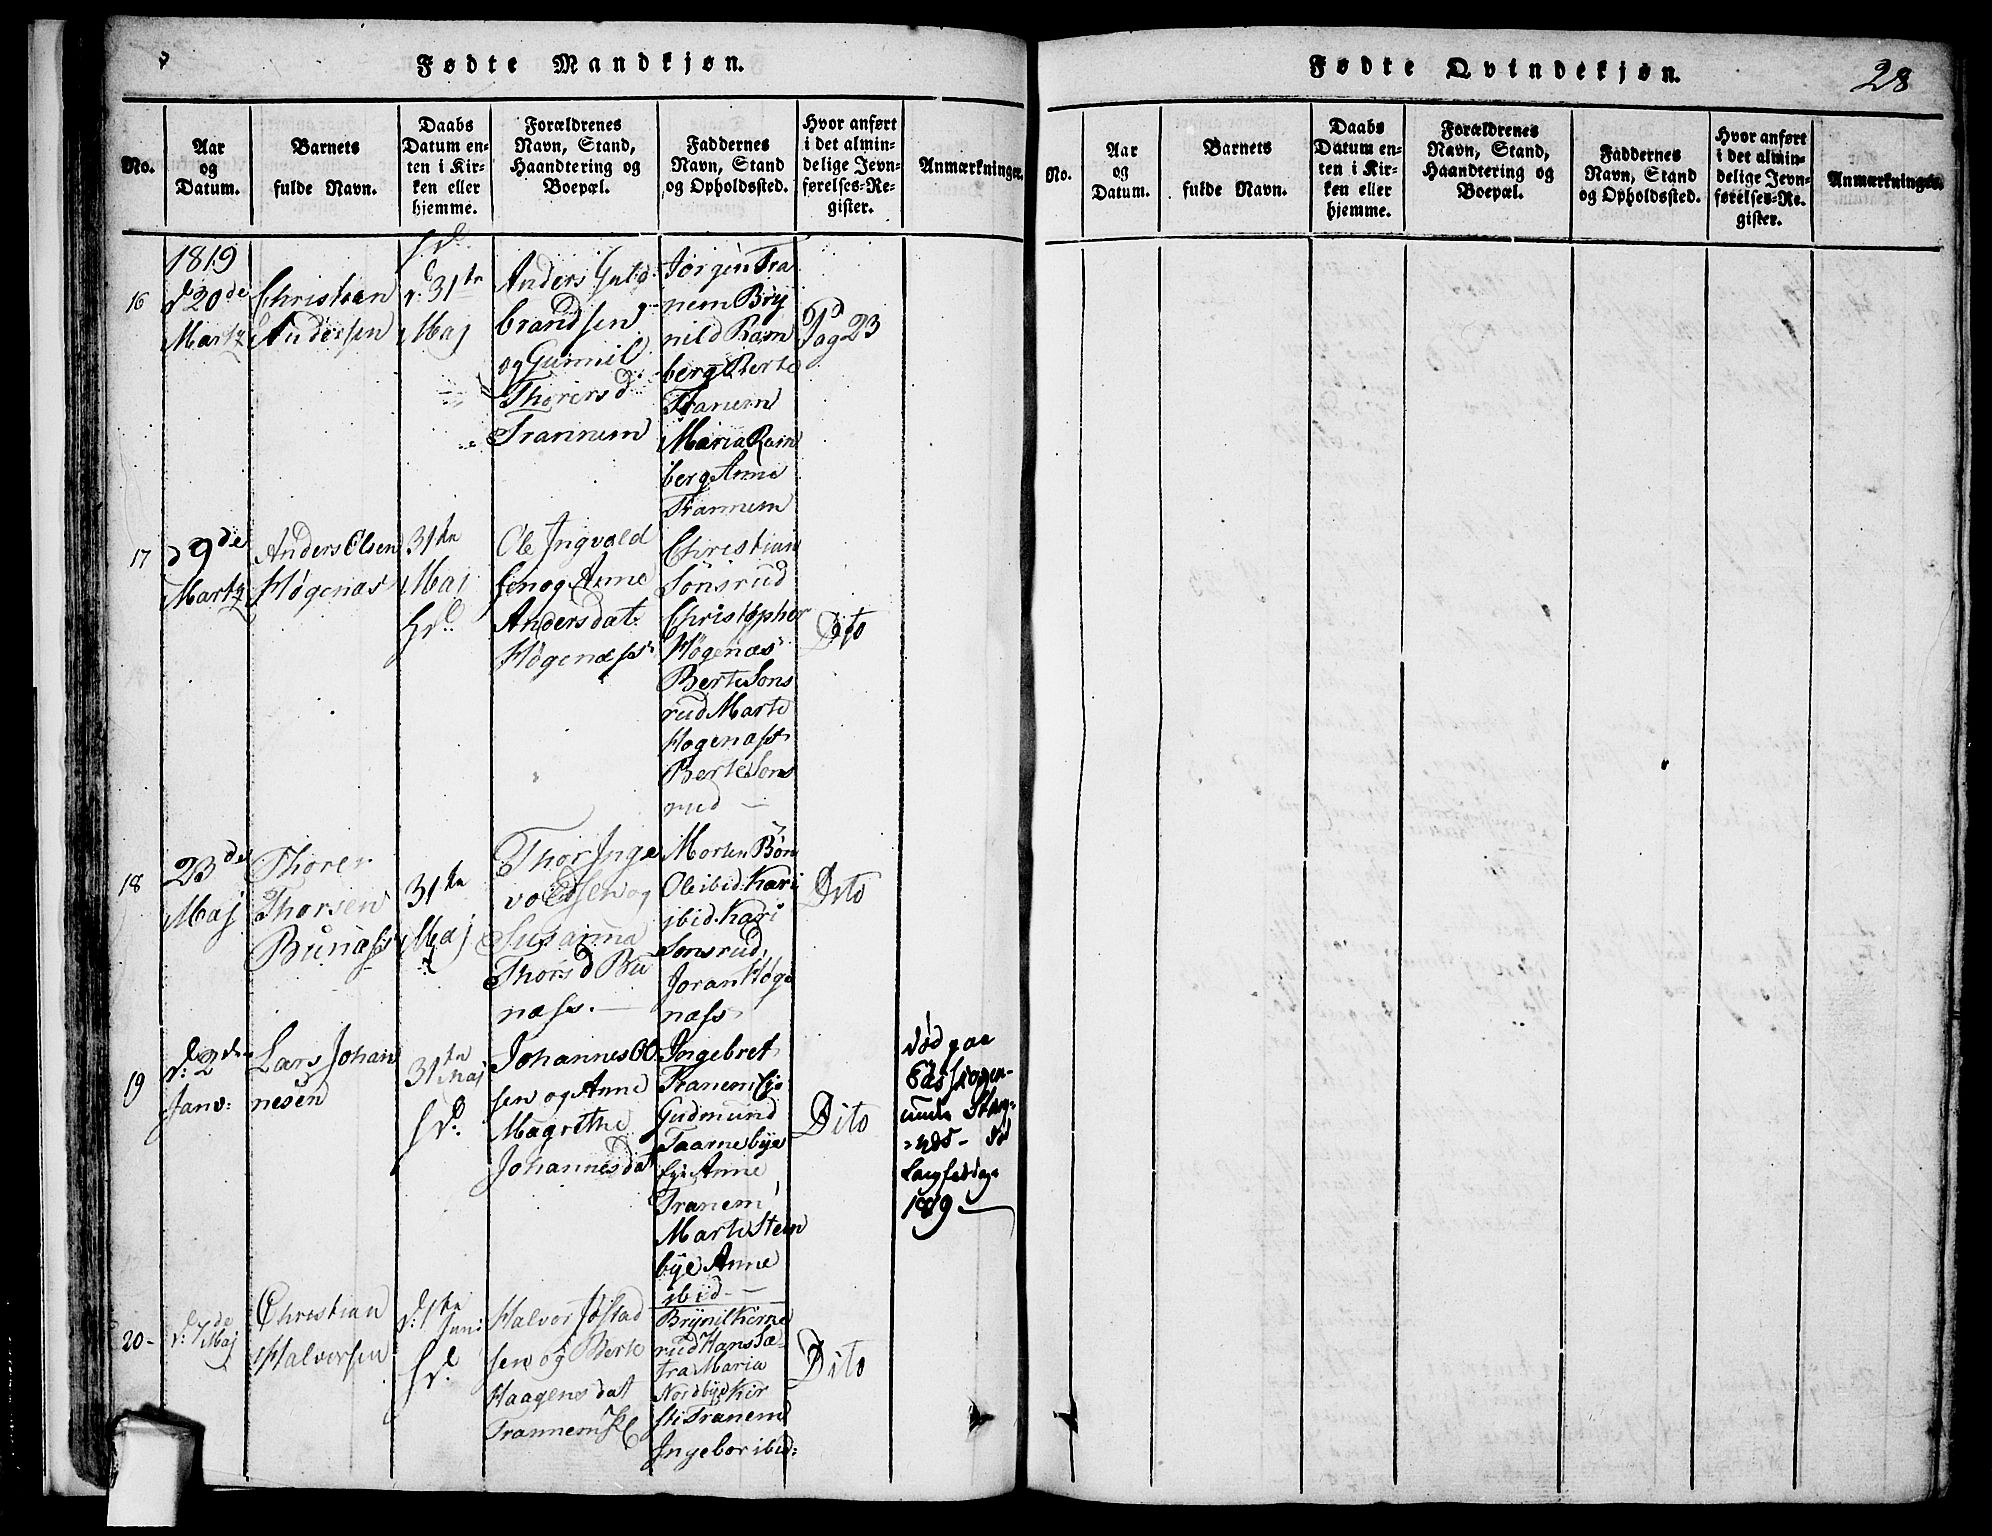 Fødte Mandkjøn.
No.
Aar
og
Datum.
Barnets
fulde Navn.
Daabs
Datum en-
ten i Kir-
ken eller
hjemme.
Forældrenes
Navn, Stand,
Haandtering og
Boepæl.
Faddernes
Navn, Stand
og Opholdssted.
Hvor anført
i det almin-
delige Jevn-
førelses-Re-
gister.
Anmærkninger.
16
1819
d 20de
Martz
Christian
Andersen
d: 31te
Maj
Anders Guld
brandsen
og Gunnil
Thorersd
Trannem
Jørgen Tra
nem Bry
nild Ram
berg Berte
Tranem
Maria Ram
berg Anne
Trannem
Pag 23
17
d 9de
Martz
Anders Olsen
Høgenæs
31te
Maj
Ole Ingvald
sen og Anne
Andersdat
Høgenæss
Christian
Sønsrud
Christopher
Høgenæs
Berte Søns
rud Marte
Høgenæss
Berte Søns
rud —
Dito
18
23de
Maj
Thorer
Thorsen
Bunæss
31te
Maj
Thor Inge
voldsen og
Susanna
Thorsd Bu
næss. —
Morten Bøn
Ole ibid. Kari
ibid. Kari
Sønsrud,
Joran Høge
næss
Dito
19
d: 2den
Janv:
Lars Johan
nesen
31te Maj
Johannes Ol
sen og Anne
Magrethe
Johannesdat
Ingebret
Tranem Eje
Gudmund
Taarnebye
Eje Anne
Tranem
Marte Steen
bye Anne
ibid —
Dito
død paa
Langfredag
1819 —
20-
d: 7de Maj
Christian
Halvorsen
d: 1te Juni
Halvor Jostad
sen og Berte
Haagensdat
Trannem
Brynil Kirne
rud Hans Sæ-
tra Maria
Nordbye Kir
sti Tranem
Ingebor ibid:
Dito
Fødte Qvindekjøn.
28
No.
Aar
og
Datum.
Barnets
fulde Navn.
Daabs
Datum en-
ten i Kir-
ken eller
hjemme.
Forældrenes
Navn, Stand,
Haandtering og
Boepæl.
Faddernes
Navn, Stand
og Opholdssted.
Hvor anført
i det almin-
delige Jevn-
førelses-Re-
gister.
Anmærkninger.